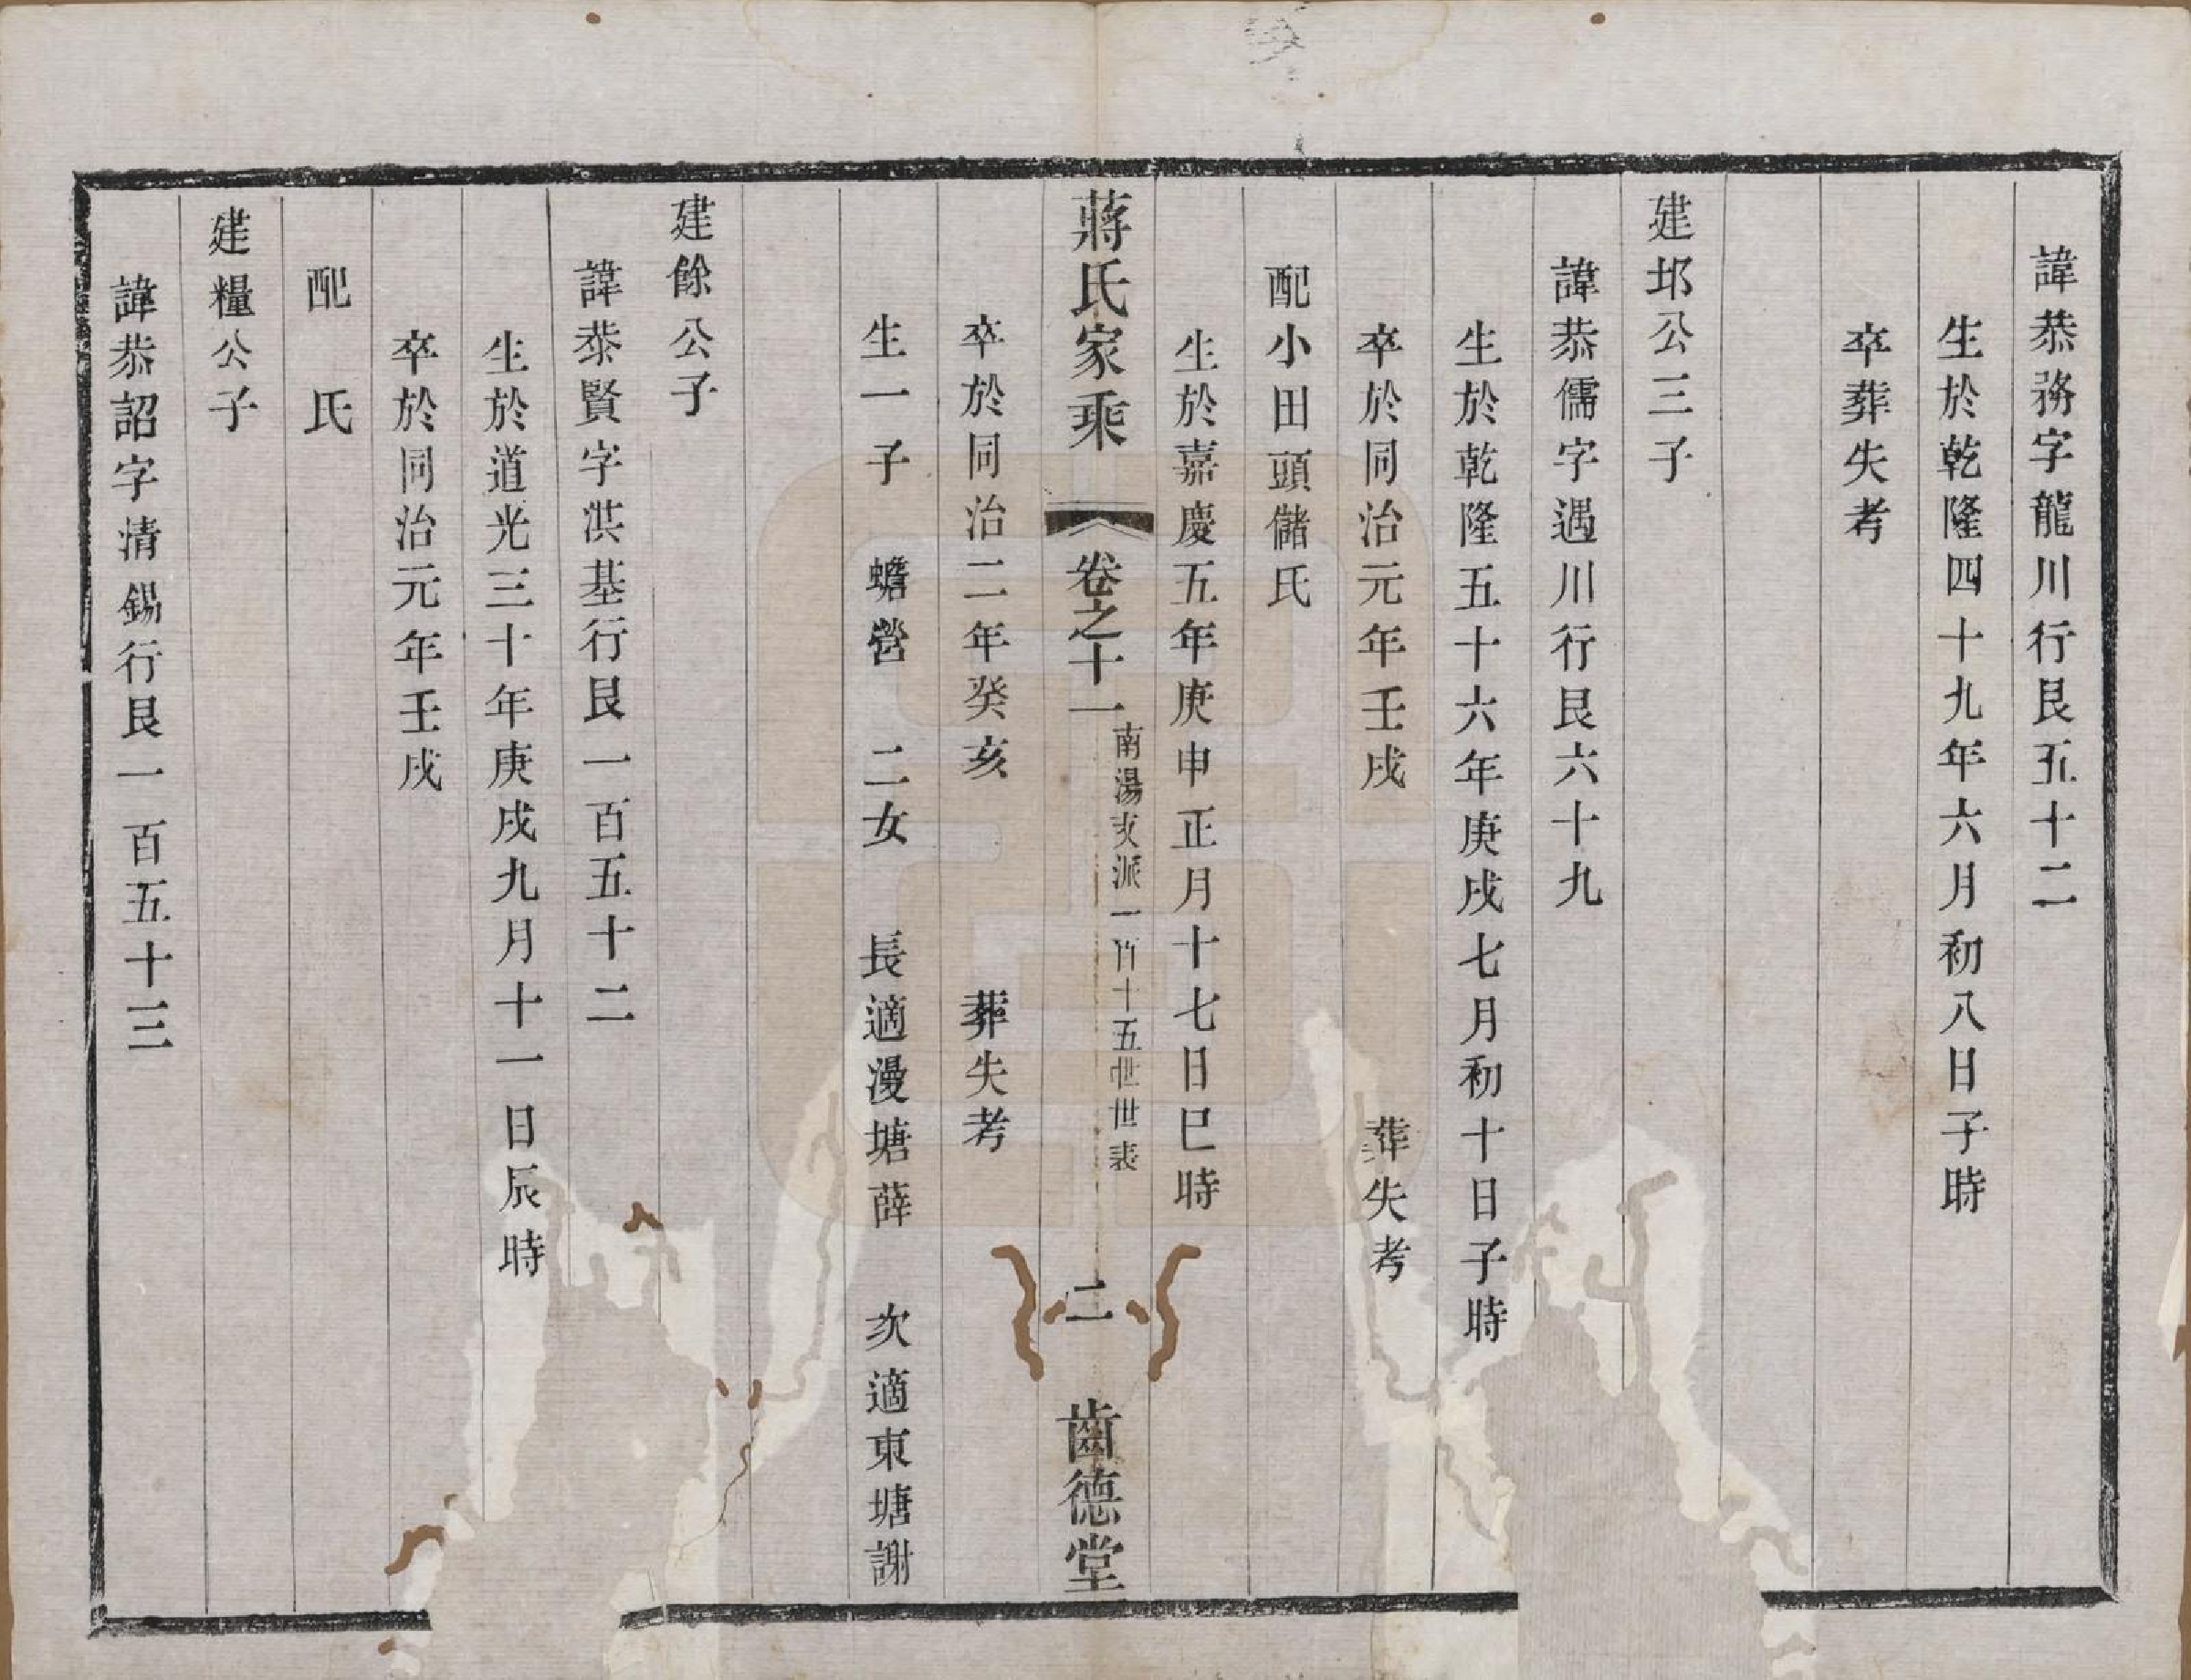 諱恭務字龍川行艮五十二
生於乾隆四十九年六月初八日子時
卒葬失考
建邦公三子
諱恭儒字遇川行艮六十九
生於乾隆五十六年庚戌七月初十日子時
卒於同治元年壬戌 葬失考
配小田頭儲氏
生於嘉慶五年庚申正月十七日巳時
蔣氏家乘 卷之十一 南湯亥派一竹十五世世表 二 齒德堂
卒於同治二年癸亥 葬失考
生一子 蟾營 二女 長適漫塘薛 次適東塘謝
建餘公子
諱恭賢字洪基行艮一百五十二
生於道光三十年庚戌九月十一日辰時
卒於同治元年壬戌
配 氏
建糧公子
諱恭詔字清錫行艮一百五十三